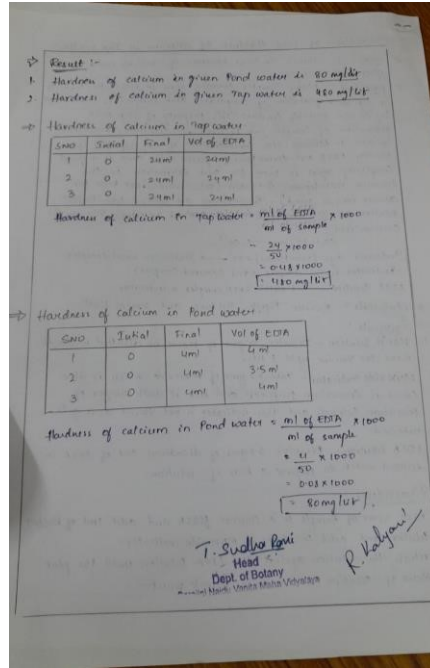 Result :-
1. Hardness of calcium in given Pond water is 80 mg/lit
2. Hardness of calcium in given Tap water is 480 mg/lit
→ Hardness of calcium in Tap water
SNO Initial Final Vol of EDTA
1 0 24ml 24ml
2 0 24ml 24ml
3 0 24ml 24ml
Hardness of calcium in Tap water = ml of EDTA / ml of sample × 1000
= 24/50 × 1000
= 0.48 × 1000
= 480 mg/lit
⇒ Hardness of calcium in Pond water
SNO Initial Final Vol of EDTA
1 0 4ml 4ml
2 0 4ml 3.5ml
3 0 4ml 4ml
Hardness of calcium in Pond water = ml of EDTA / ml of sample × 1000
= 4/50 × 1000
= 0.08 × 1000
= 80mg/lit
T. Sudha Rani
Head
Dept. of Botany
Naidu Vanita Maha Vidyalaya
R. Kalyani